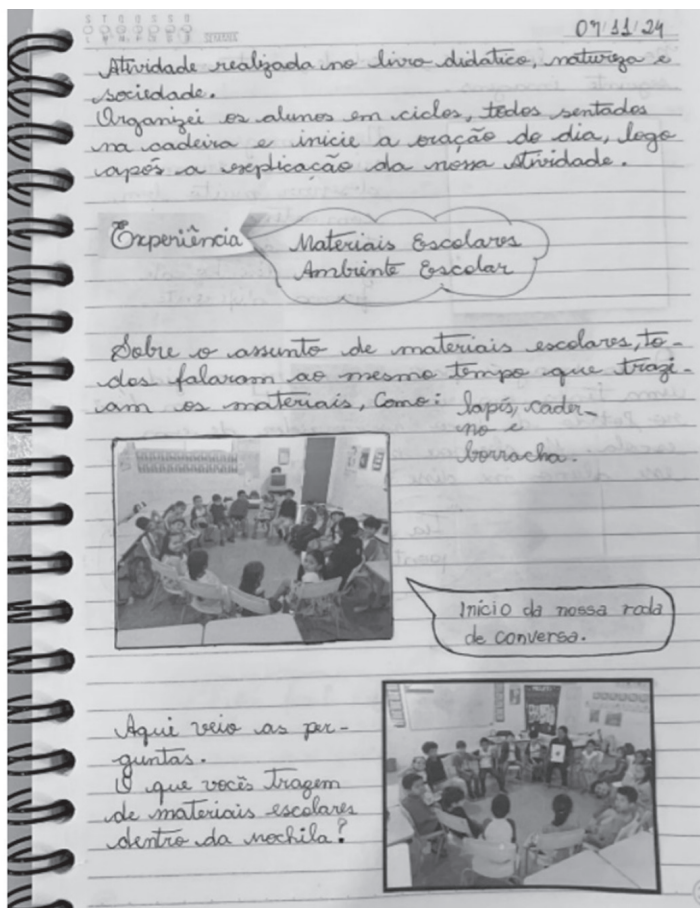 07/11/24
Atividade realizada no livro didático, natureza e
sociedade.
Organizei os alunos em ciclos, todos sentados
na cadeira e inicie a oração do dia, logo
após a explicação da nossa atividade.
Experiência
Materiais Escolares
Ambiente Escolar
Sobre o assunto de materiais escolares, to-
dos falaram ao mesmo tempo que trazi-
am os materiais, Como: lapís, cader-
no e
borracha.
Inicio da nossa roda
de conversa.
Aqui veio as per-
guntas.
O que vocês tragem
de materiais escolares
dentro da mochila?